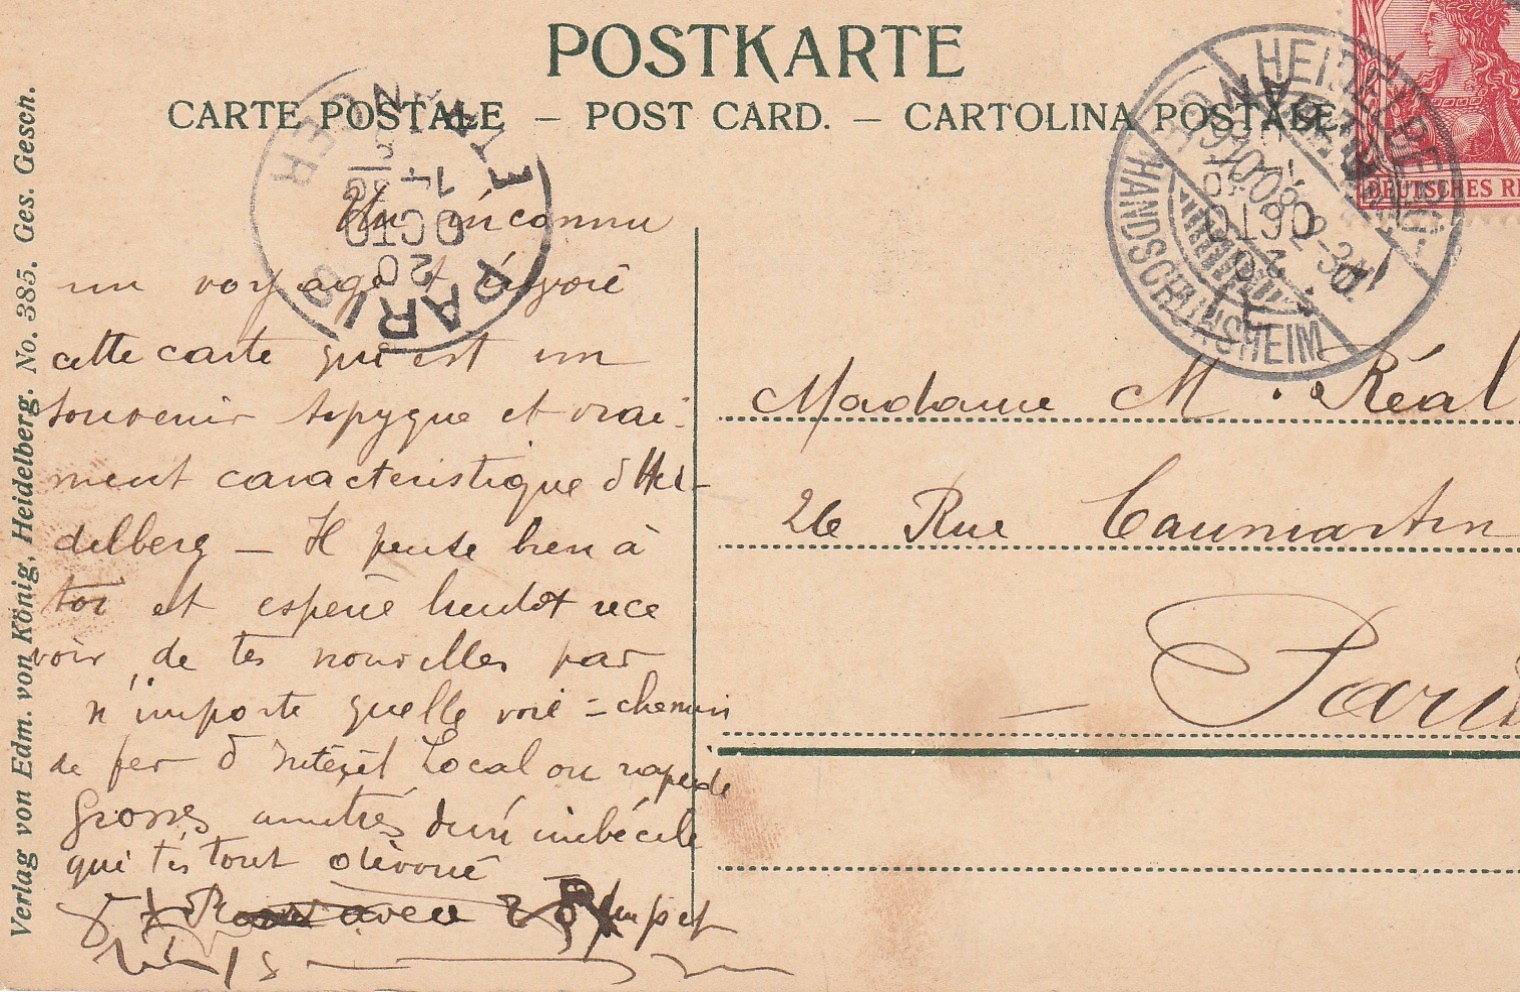 POSTKARTE
CARTE POSTALE – POST CARD. – CARTOLINA POSTALE
Verlag von Edm. von König, Heidelberg. No. 385. Ges. Gesch.
HEIDELBERG-
HANDSCHUHSHEIM
DEUTSCHES RE
PARIS
20
OCTO
14
ETRANGER
Un inconnu
un voyage t'envoie
cette carte qui est un
souvenir typyque et vrai-
ment caracteristique d'Hei-
delberg — Il pense bien à
toi et espère bientot rece
voir de tes nouvelles par
n'importe quelle voie = chemin
de fer d'Intérêt Local ou rapide
Grosses amitiés d'un imbécile
qui t'es tout dévoué
Madame M. Réal
26 Rue Caumartin
— Paris